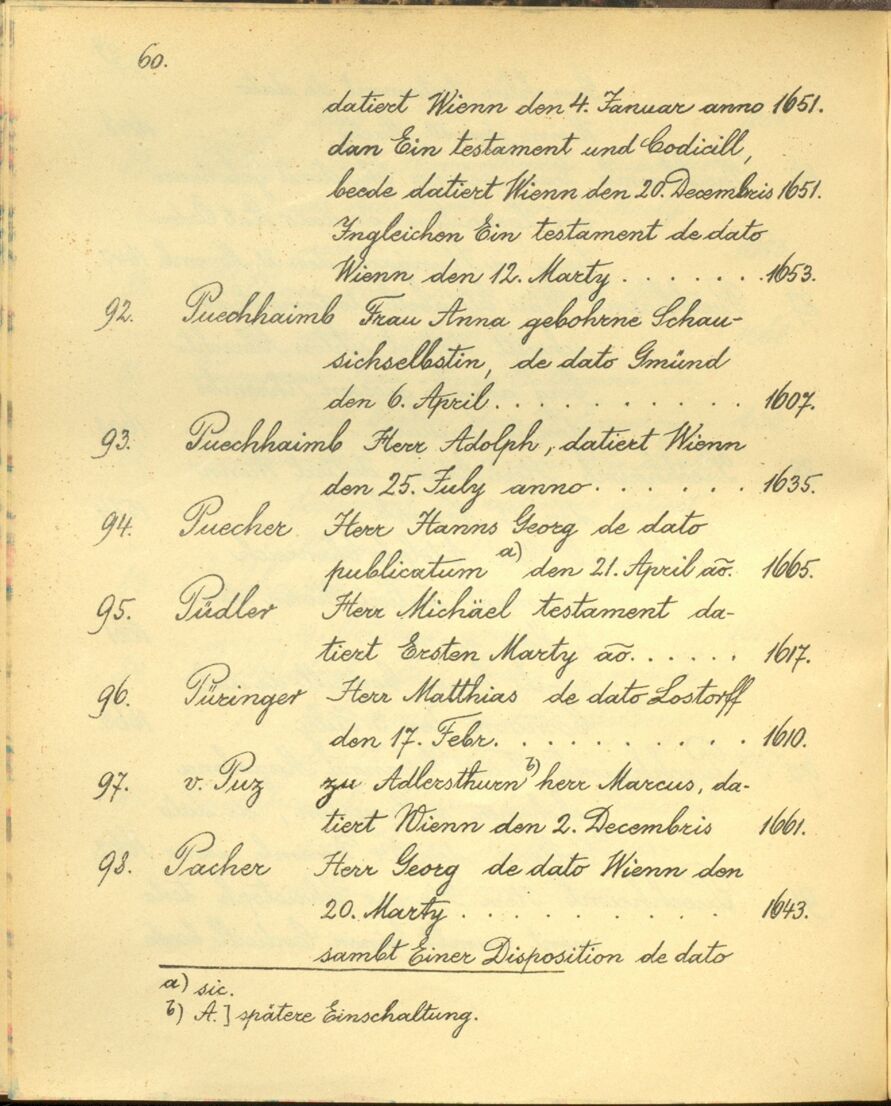 60.
datiert Wienn den 4. Januar anno 1651.
dan Ein testament und Codicill,
beede datiert Wienn den 20. Decembris 1651.
Ingleichen Ein testament de dato
Wienn den 12. Marty . . . . . . . 1653.
92. Puechhaimb Frau Anna gebohrne Schau-
sichselbstin, de dato Gmünd
den 6. April . . . . . . . . . . . 1607.
93. Puechhaimb Herr Adolph, datiert Wienn
den 25. July anno . . . . . . . 1635.
94. Puecher Herr Hanns Georg de dato
publicatum a) den 21. April ão. 1665.
95. Püdler Herr Michäel testament da-
tiert Ersten Marty ão. . . . . . 1617.
96. Püringer Herr Matthias de dato Lostorff
den 17. Febr. . . . . . . . . . . 1610.
97. v. Puz zu Adlersthurn b) herr Marcus, da-
tiert Wienn den 2. Decembris 1661.
98. Pacher Herr Georg de dato Wienn den
20. Marty . . . . . . . . . . . 1643.
sambt Einer Disposition de dato
a) sic.
b) A.] spätere Einschaltung.